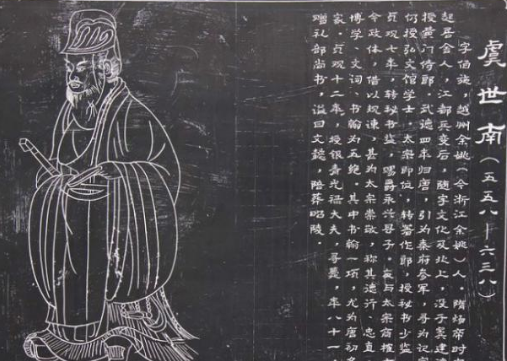 虞世南（五五八—六三八）
字伯施，越州余姚（今浙江余姚）人，隋炀帝时
起居舍人，江都兵变后，随宇文化及北上，没于窦建
授黄门侍郎，武德四年归唐，引为秦府参军，寻为记
何授弘文馆学士，太宗即位，转著作郎，授秘书少监
贞观七年，转秘书监，赐爵永兴县子，与太宗商榷
令政体，借以规谏，甚为太宗崇敬，称其德行、忠直
博学、文词、书翰为五绝。其中书翰一项，尤为唐初
家，贞观十二年，授银青光禄大夫，寻薨，年八十一
赠礼部尚书，谥曰文懿，陪葬昭陵。